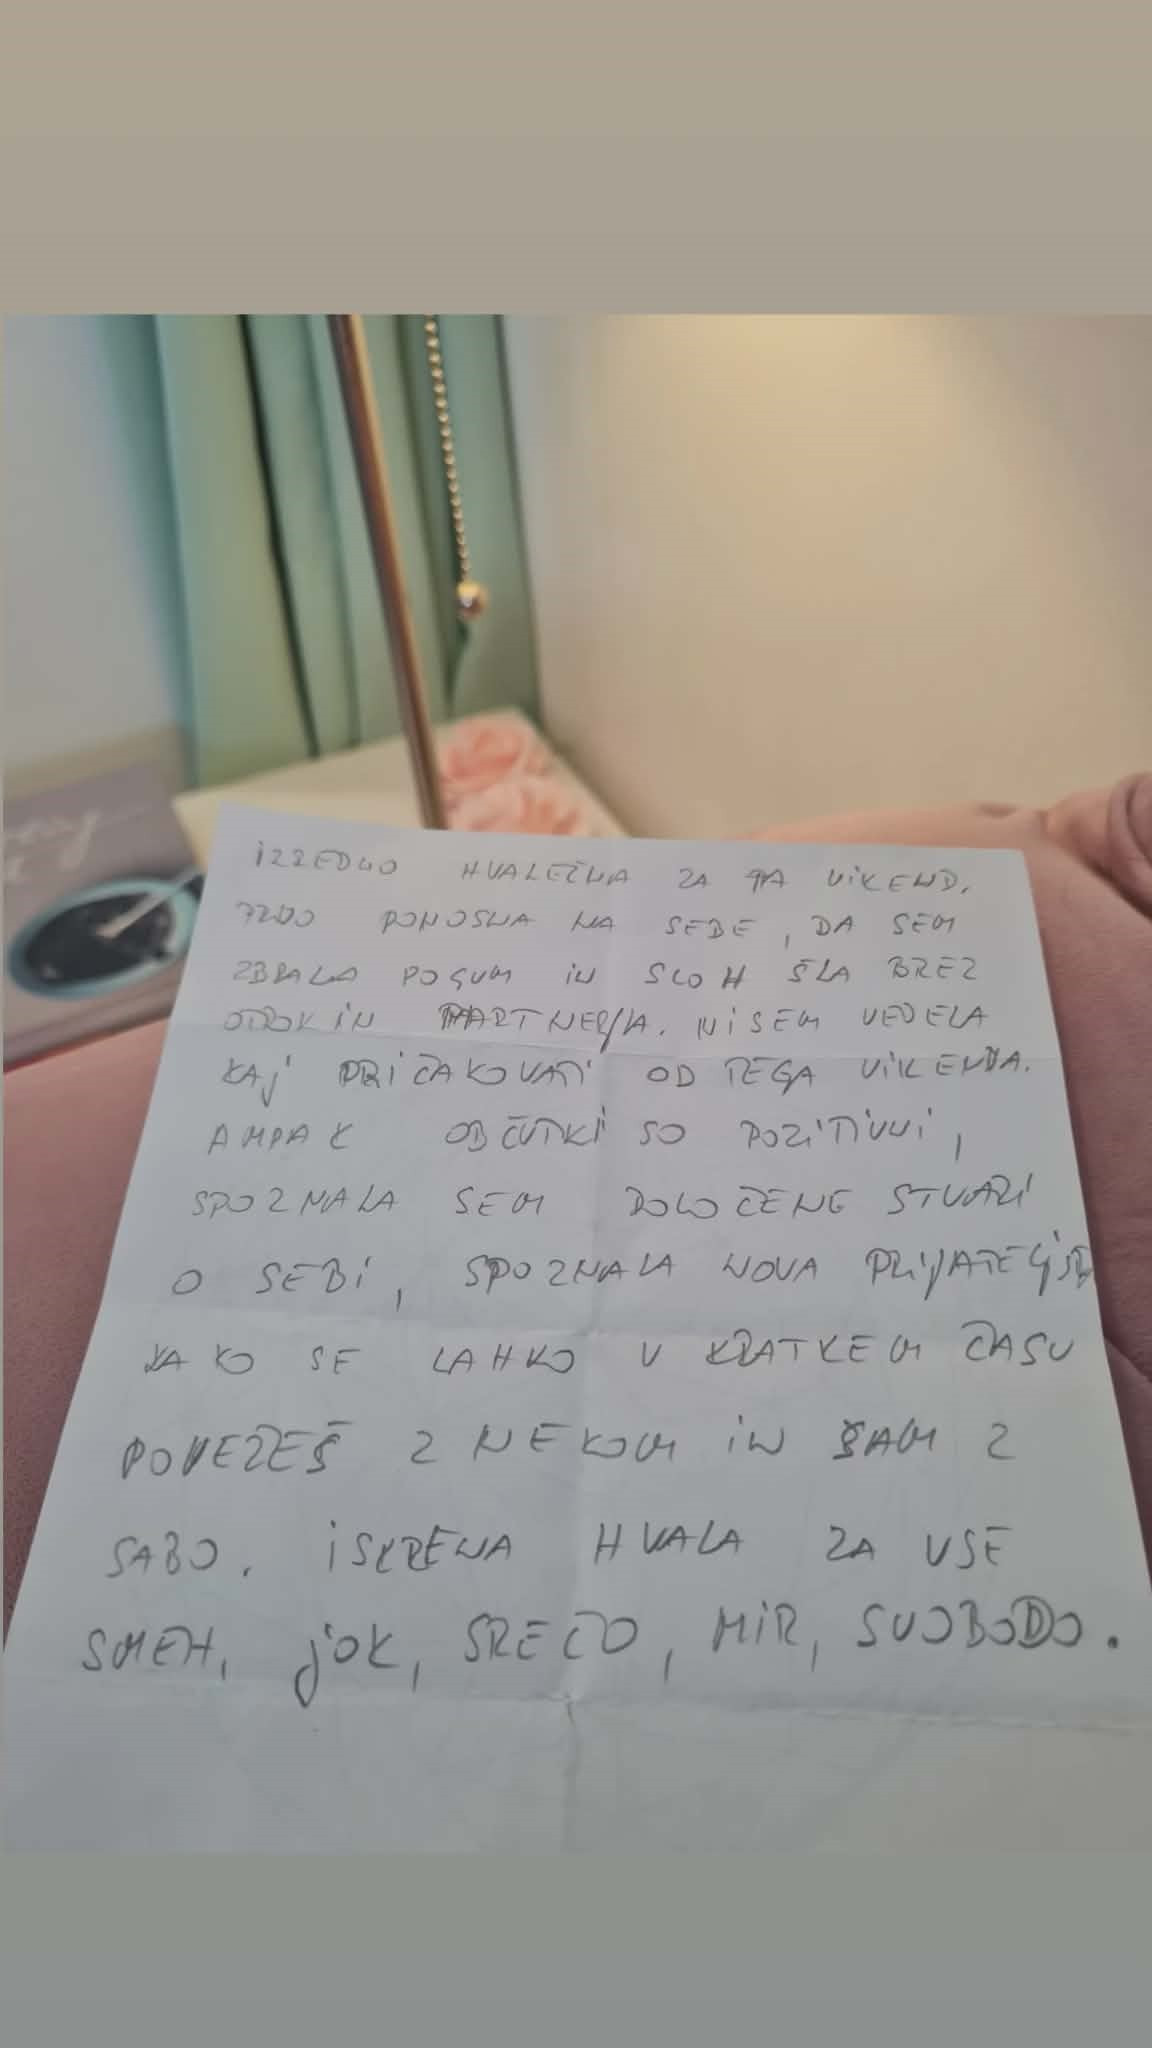 IZREDNO HVALEŽNA ZA TA VIKEND.
ZELO PONOSNA NA SEBE, DA SEM
ZBRALA POGUM IN SLOH ŠLA BREZ
OTROK IN PARTNERJA. NISEM VEDELA
KAJ PRIČAKOVATI OD TEGA VIKENDA.
AMPAK OBČUTKI SO POZITIVNI,
SPOZNALA SEM DOLOČENE STVARI
O SEBI, SPOZNALA NOVA
KAKO SE LAHKO V KRATKEM ČASU
POVEŽEŠ Z NEKOM IN SAM Z
SABO. ISKRENA HVALA ZA VSE
SMEH, JOK, SREČO, MIR, SVOBODO.